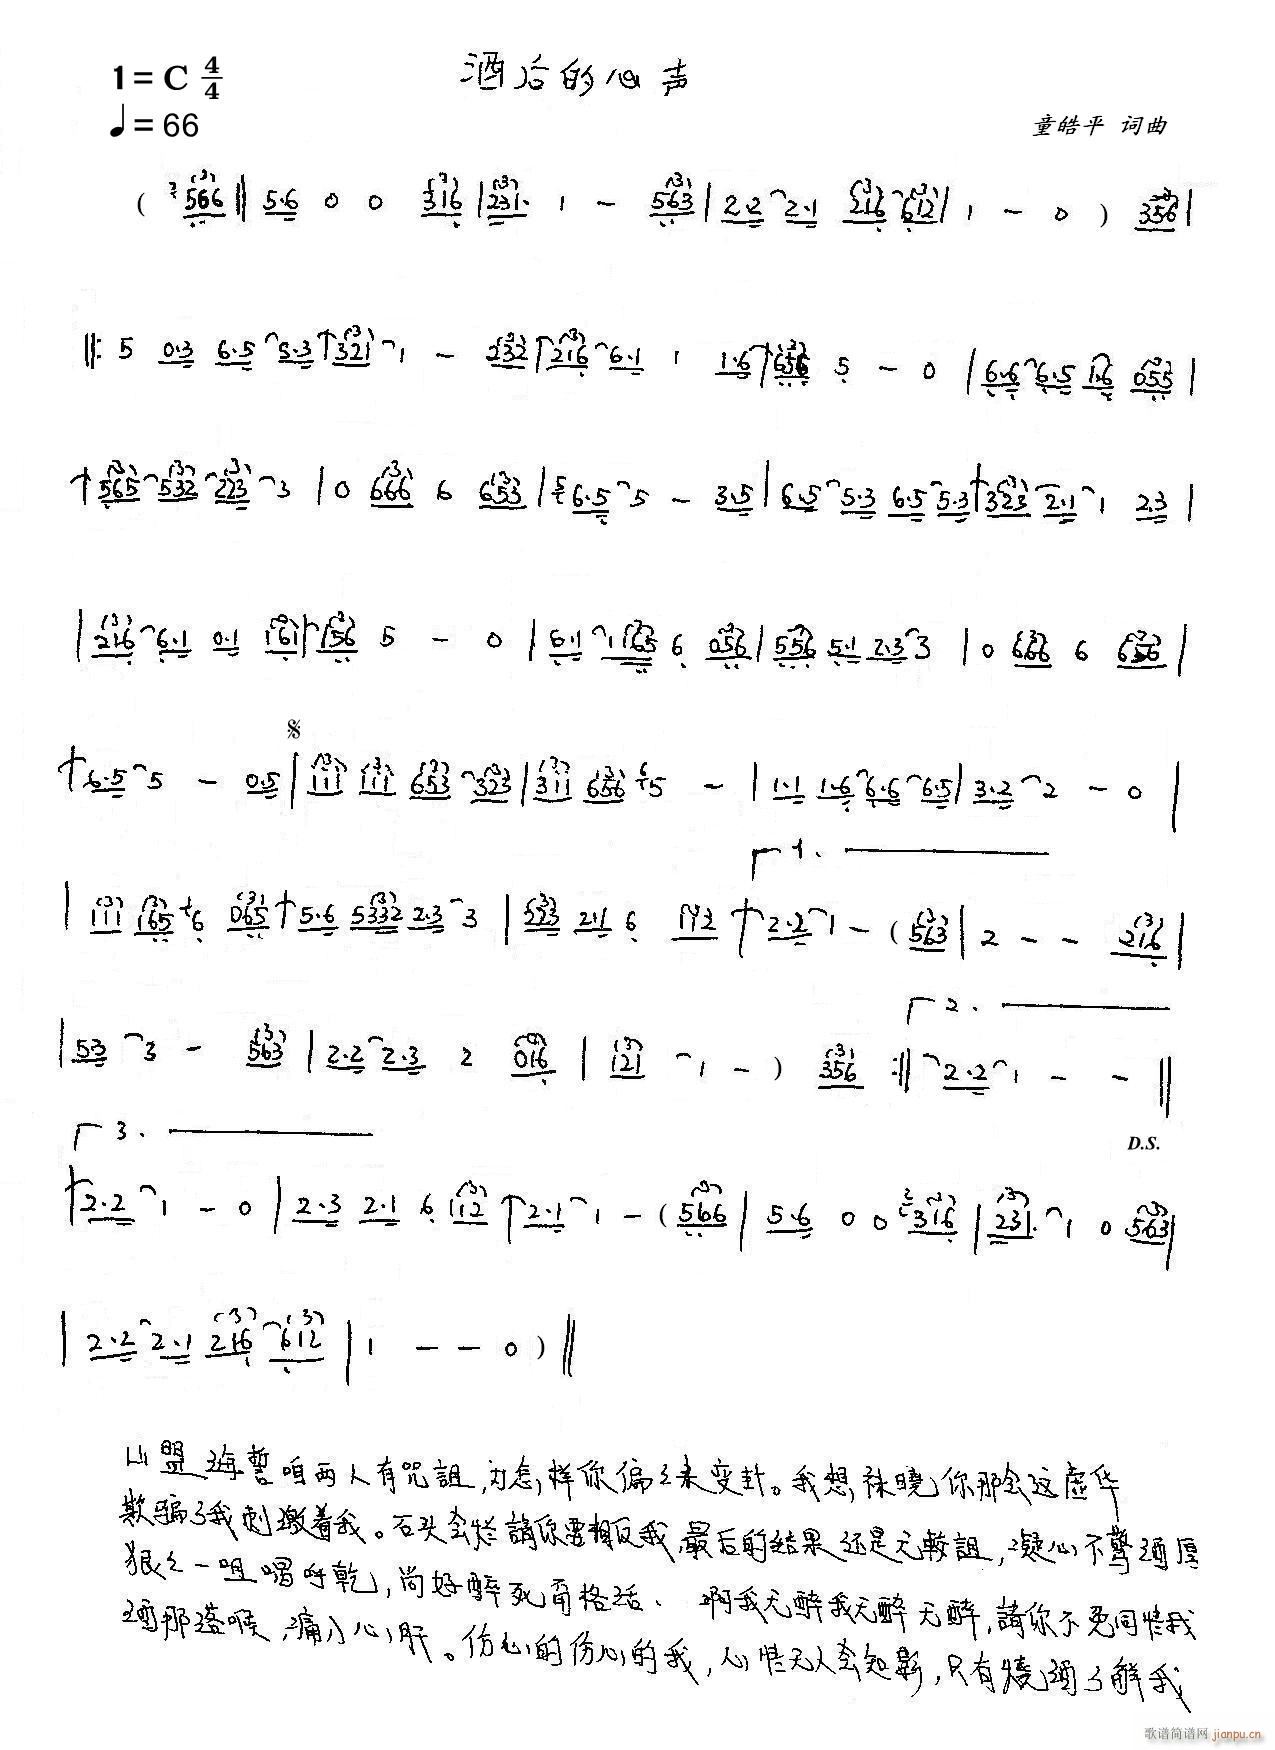 1=C 4/4
酒后的心声
♩=66
童皓平 词曲
( 566 ‖ 5·6 0 0 316 | 231· 1 - 563 | 2·2 2·1 216 612 | 1 - 0 ) 356 |
‖: 5 0·3 6·5 5·3 321 1 - 232 216 6·1 1 1·6 656 5 - 0 | 6·6 6·5 1·6 055 |
565 532 223 3 | 0 666 6 653 | 6·5 5 - 3·5 | 6·5 5·3 6·5 5·3 323 2·1 1 2·3 |
| 216 6·1 0·1 161 156 5 - 0 | 6·1 1165 6 056 | 556 5·1 2·3 3 | 0 666 6 656 |
6·5 5 - 0·5 | 111 111 653 323 | 311 656 5 - | 1·1 1·6 6·6 6·5 | 3·2 2 - 0 |
1.
| 111 165 6 065 5·6 5332 2·3 3 | 223 2·1 6 2·2 1 - ( 563 | 2 - - 216 |
2.
| 53 3 - 563 | 2·2 2·3 2 016 | 121 1 - ) 356 :‖ 2·2 1 - - ‖
3.
D.S.
2·2 1 - 0 | 2·3 2·1 6 112 2·1 1 - ( 566 | 5·6 0 0 316 | 231· 1 0 563 |
| 2·2 2·1 216 612 | 1 - - 0 ) ‖
山盟海誓咱两人有咒詛,为怎样你偏来变卦。我想袜晓你那会这虚华
欺骗了我刺激着我。石头会烂請你要相反我,最后的结果还是无較詛,凝心不驚酒厚
狠一咀喝呼乾,尚好醉死甭格活、啊我无醉我无醉无醉,請你不免同情我
酒那落喉,痛入心肝。伤心的伤心的我,心情无人会知影,只有燒酒了解我
歌谱简谱网 jianpu.cn